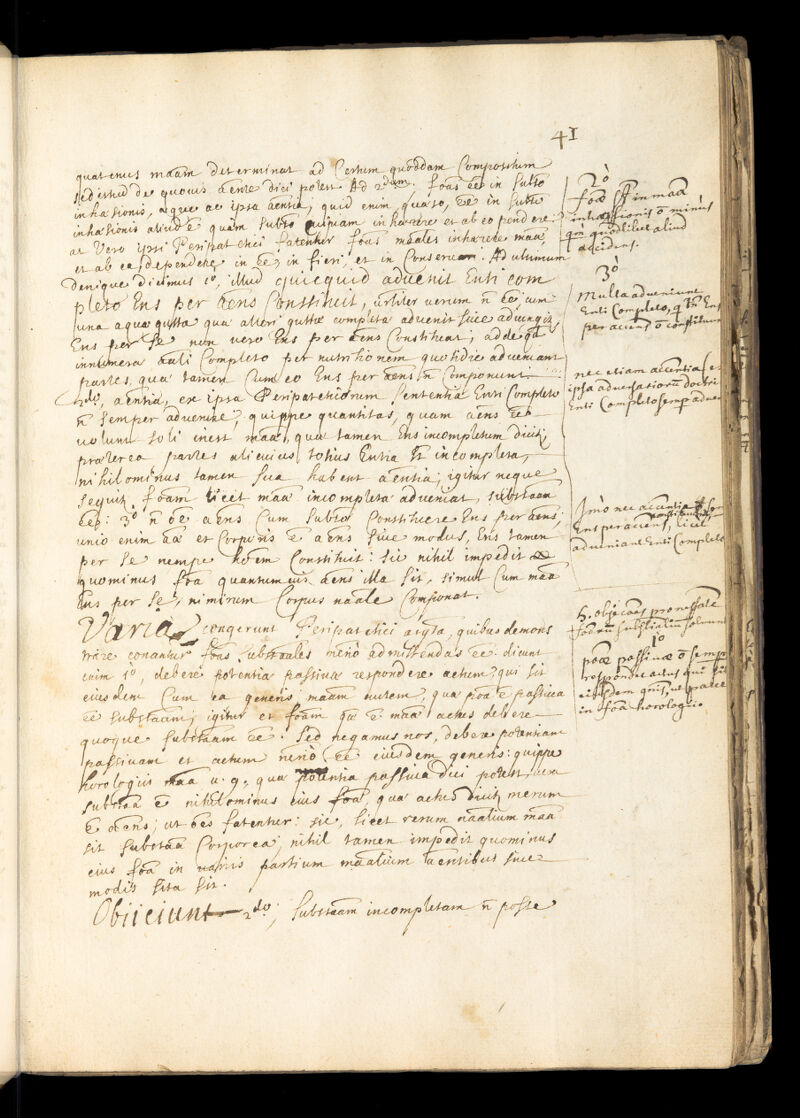 41
quatenus maām determinat ad Certum quoddam Compositum
sed istud de quovis aēnte dici potest. Ad 2dum. foās eē in subto
inhaesionis, aeque ac ipsa aēntia; quid enim, quaeso, eē in subto
inhaesionis aliud ē quam subto cuipiam inhaerere et ab eo pendere:
at Vero ipsi Peripatetici fatentur foās māales inhaerere maā,
et ab ea dependere in eē, in fieri, et in Conservari. Ad ultimum
Denique dicimus 1o, illud quicquid advenit Enti com
pleto Ens per aēns Constituit, ūrliter verum n̄ eē cum
una aquae gutta quae alteri guttae completae advenit sive adiungiĩ
Ens per se non vero Ens per aēns Constituat; adde qd
innumerae aāli Completo per nutritionem quotidie adveniant
partes, quae tamen Cum eo Ens per aēns n̄ Componunt:
2do, aēntia, ex ipsa Peripateticorum Sententia Enti Completo
n̄ semper advenire, quippe quantitas, quam aēns eē
volunt soli inest maā, quae tamen Ens incompletum diciĩ;
praeterea partes alicuius totius Entia st̄ incompleta,
nihilominus tamen sua habent aēntia; igitur neque
sequiĩ foām licet maā incompletae adveniat, substaām
eē: 3o n̄ oē aēns Cum subto Constituere Ens per aēns,
unio enim aāe et Corporis ē aēns sive modus, Ens tamen
per se nempe hoēm Constituit: sic nihil impedit
quominus foā quantumvis aēns illa sit, simul Cum maā
Ens per se, nimirum Corpus nāale Componat.
Varia congerunt Peripatetici arḡta, quibus demons
trare conantur foās substāales nēriò admittendas eē: dicunt
enim 1o, debere potentiae passivae respondere actum, qui sit
eiusdem Cum ea generis maām autem, quae poā ē passiva
eē substaām; igitur et foām quae ē maāe actus debere
quoque substaām eē. Sed negamus nos, debere potentiam
passivam et actum nēriò eē eiusdem generis: quippe
horologiis maā v. g., quae potentia passiva dici potest, cum
substaā ē nihilominus eius foā, quae actus diciĩ merum
ē aēns; ut oēs fatentur: sic, licet rerum nāalium maā
sit substaā Corporea, nihil tamen impedit quominus
eius foā in variis partium māalium aēntibus sive
modis sita sit.
Obiiciunt 2do, substaām incompletam n̄ posse
2o
foā st in maā
inhaesionis ō minùs
qm̄ quodlibet aliud
accidens.
3o
Multa adveniunt
Enti Completo, q tn̄ Ens
per accens ō constituunt
nec etiam accentia
ipsa adversariorum doctri
Enti Completo semp adve
Imò nec accentia
constituunt
Ens per accens, licet
adveniant Enti Completo
obiectaēs pro neссtate
foārum substantialium solvunt
1o
poāe passivae ō semp
respondere actus qui sit
eiusdem gnīs, ut patet
in foā horologii.